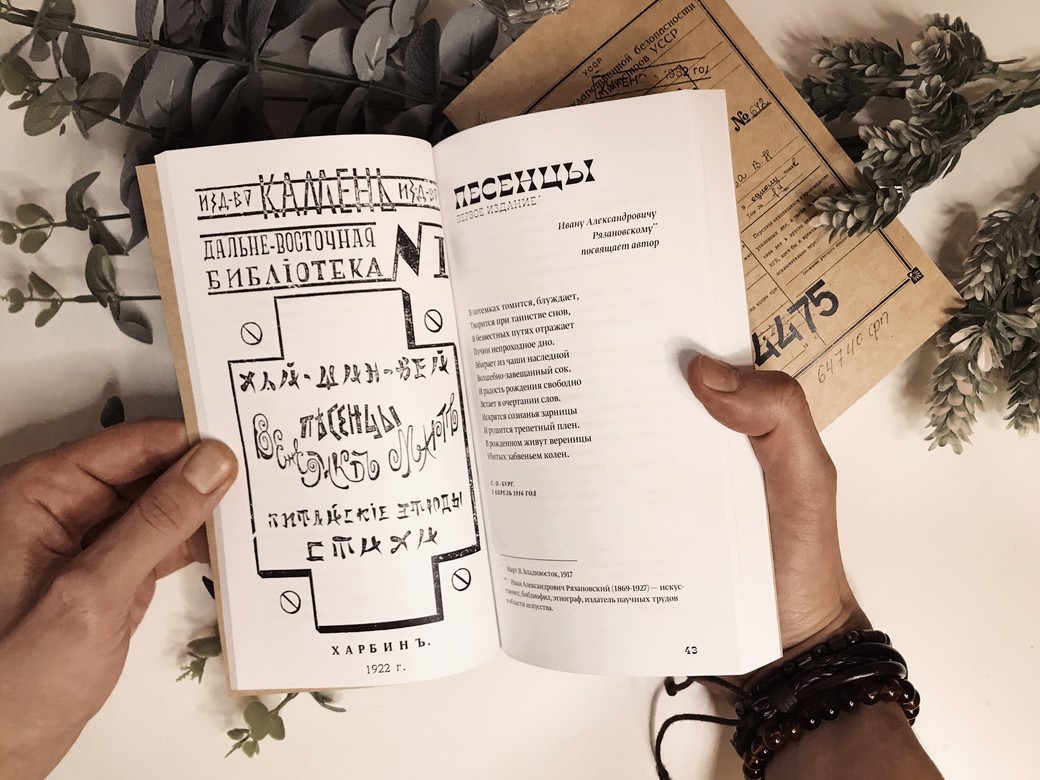 ИЗД-ВО КАМЕНЬ ИЗД-ВО
ДАЛЬНЕ-ВОСТОЧНАЯ
БИБЛІОТЕКА
№1
ХАЙ-ШИН-ВЕЙ
ПѢСЕНЦЫ
ВЕНЕДИКТЪ МАРТЪ
КИТАЙСКІЕ ЭТЮДЫ
СТИХИ
ХАРБИНЪ.
1922 г.
ПЕСЕНЦЫ
ПЕРВОЕ ИЗДАНИЕ*
Ивану Александровичу
Рязановскому**
посвящает автор
В потемках томится, блуждает,
Творится при таинстве снов,
В безвестных путях отражает
Пучин непроходное дно.
Вбирает из чаши наследной
Волшебно-завещанный сок.
И радость рождения свободно
Встает в очертании слов.
Искрятся сознанья зарницы
И рушится трепетный плен.
В рожденном живут вереницы
Убитых забвеньем колен.
С.-П.-БУРГ.
1 АПРЕЛЬ 1916 ГОД
Март В. Владивосток, 1917
Иван Александрович Рязановский (1869-1927) — искус-
ствовед, библиофил, этнограф, издатель научных трудов
в области искусства.
43
УССР
безопасности
УССР
№
4475
64740 фп